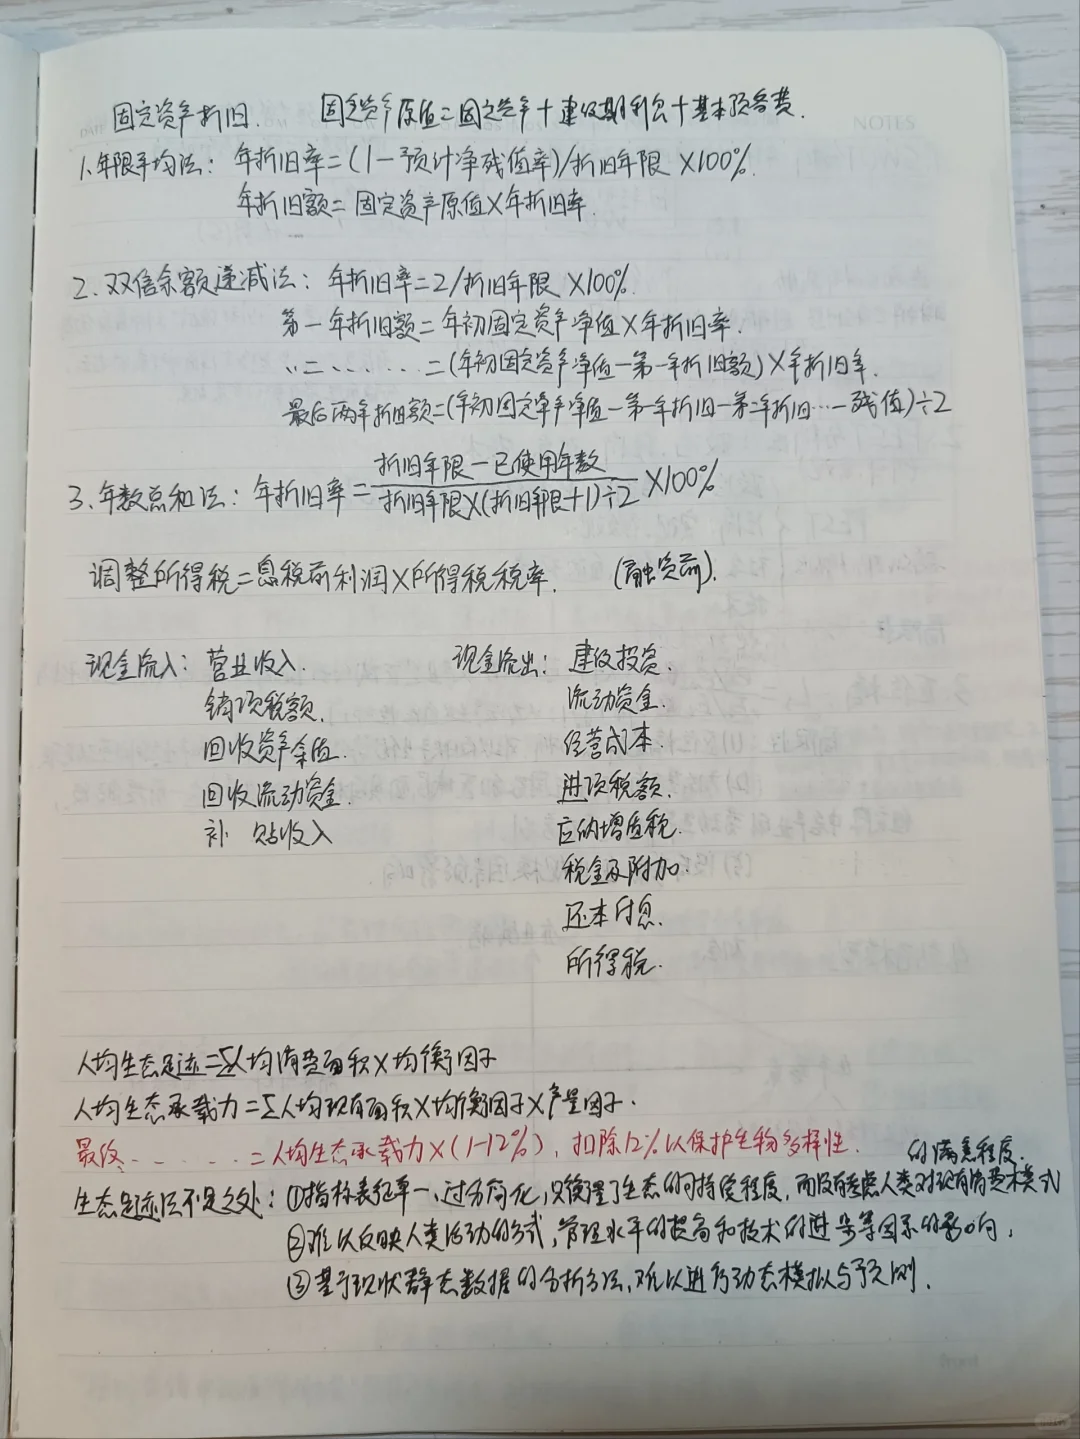 固定资产折旧. 固定资产原值=固定资产+建设期利息+基本预备费.
1.年限平均法: 年折旧率=(1-预计净残值率)/折旧年限 ×100%.
年折旧额=固定资产原值×年折旧率.
2.双倍余额递减法: 年折旧率=2/折旧年限 ×100%.
第一年折旧额=年初固定资产净值×年折旧率.
〃二、、... =(年初固定资产净值-第一年折旧额)×年折旧率.
最后两年折旧额=(年初固定资产净值-第一年折旧-第二年折旧…-残值)÷2
3.年数总和法: 年折旧率= 折旧年限-已使用年数 / 折旧年限×(折旧年限+1)÷2 ×100%
调整所得税=息税前利润×所得税税率. (融资前).
现金流入: 营业收入. 现金流出: 建设投资.
销项税额. 流动资金.
回收资产余值. 经营成本.
回收流动资金. 进项税额.
补 贴收入 应纳增值税.
税金及附加.
还本付息.
所得税.
人均生态足迹=Σ人均消费面积×均衡因子
人均生态承载力=Σ人均现有面积×均衡因子×产量因子.
最终...... =人均生态承载力×(1-12%), 扣除12%以保护生物多样性.
的满意程度.
生态足迹法不足之处: ①指标表征单一、过分简化,只衡量了生态的可持续程度,而没有考虑人类对现有消费模式
②难以反映人类活动的方式,管理水平的提高和技术的进步等因素的影响,
③基于现状静态数据的分析方法,难以进行动态模拟与预测.